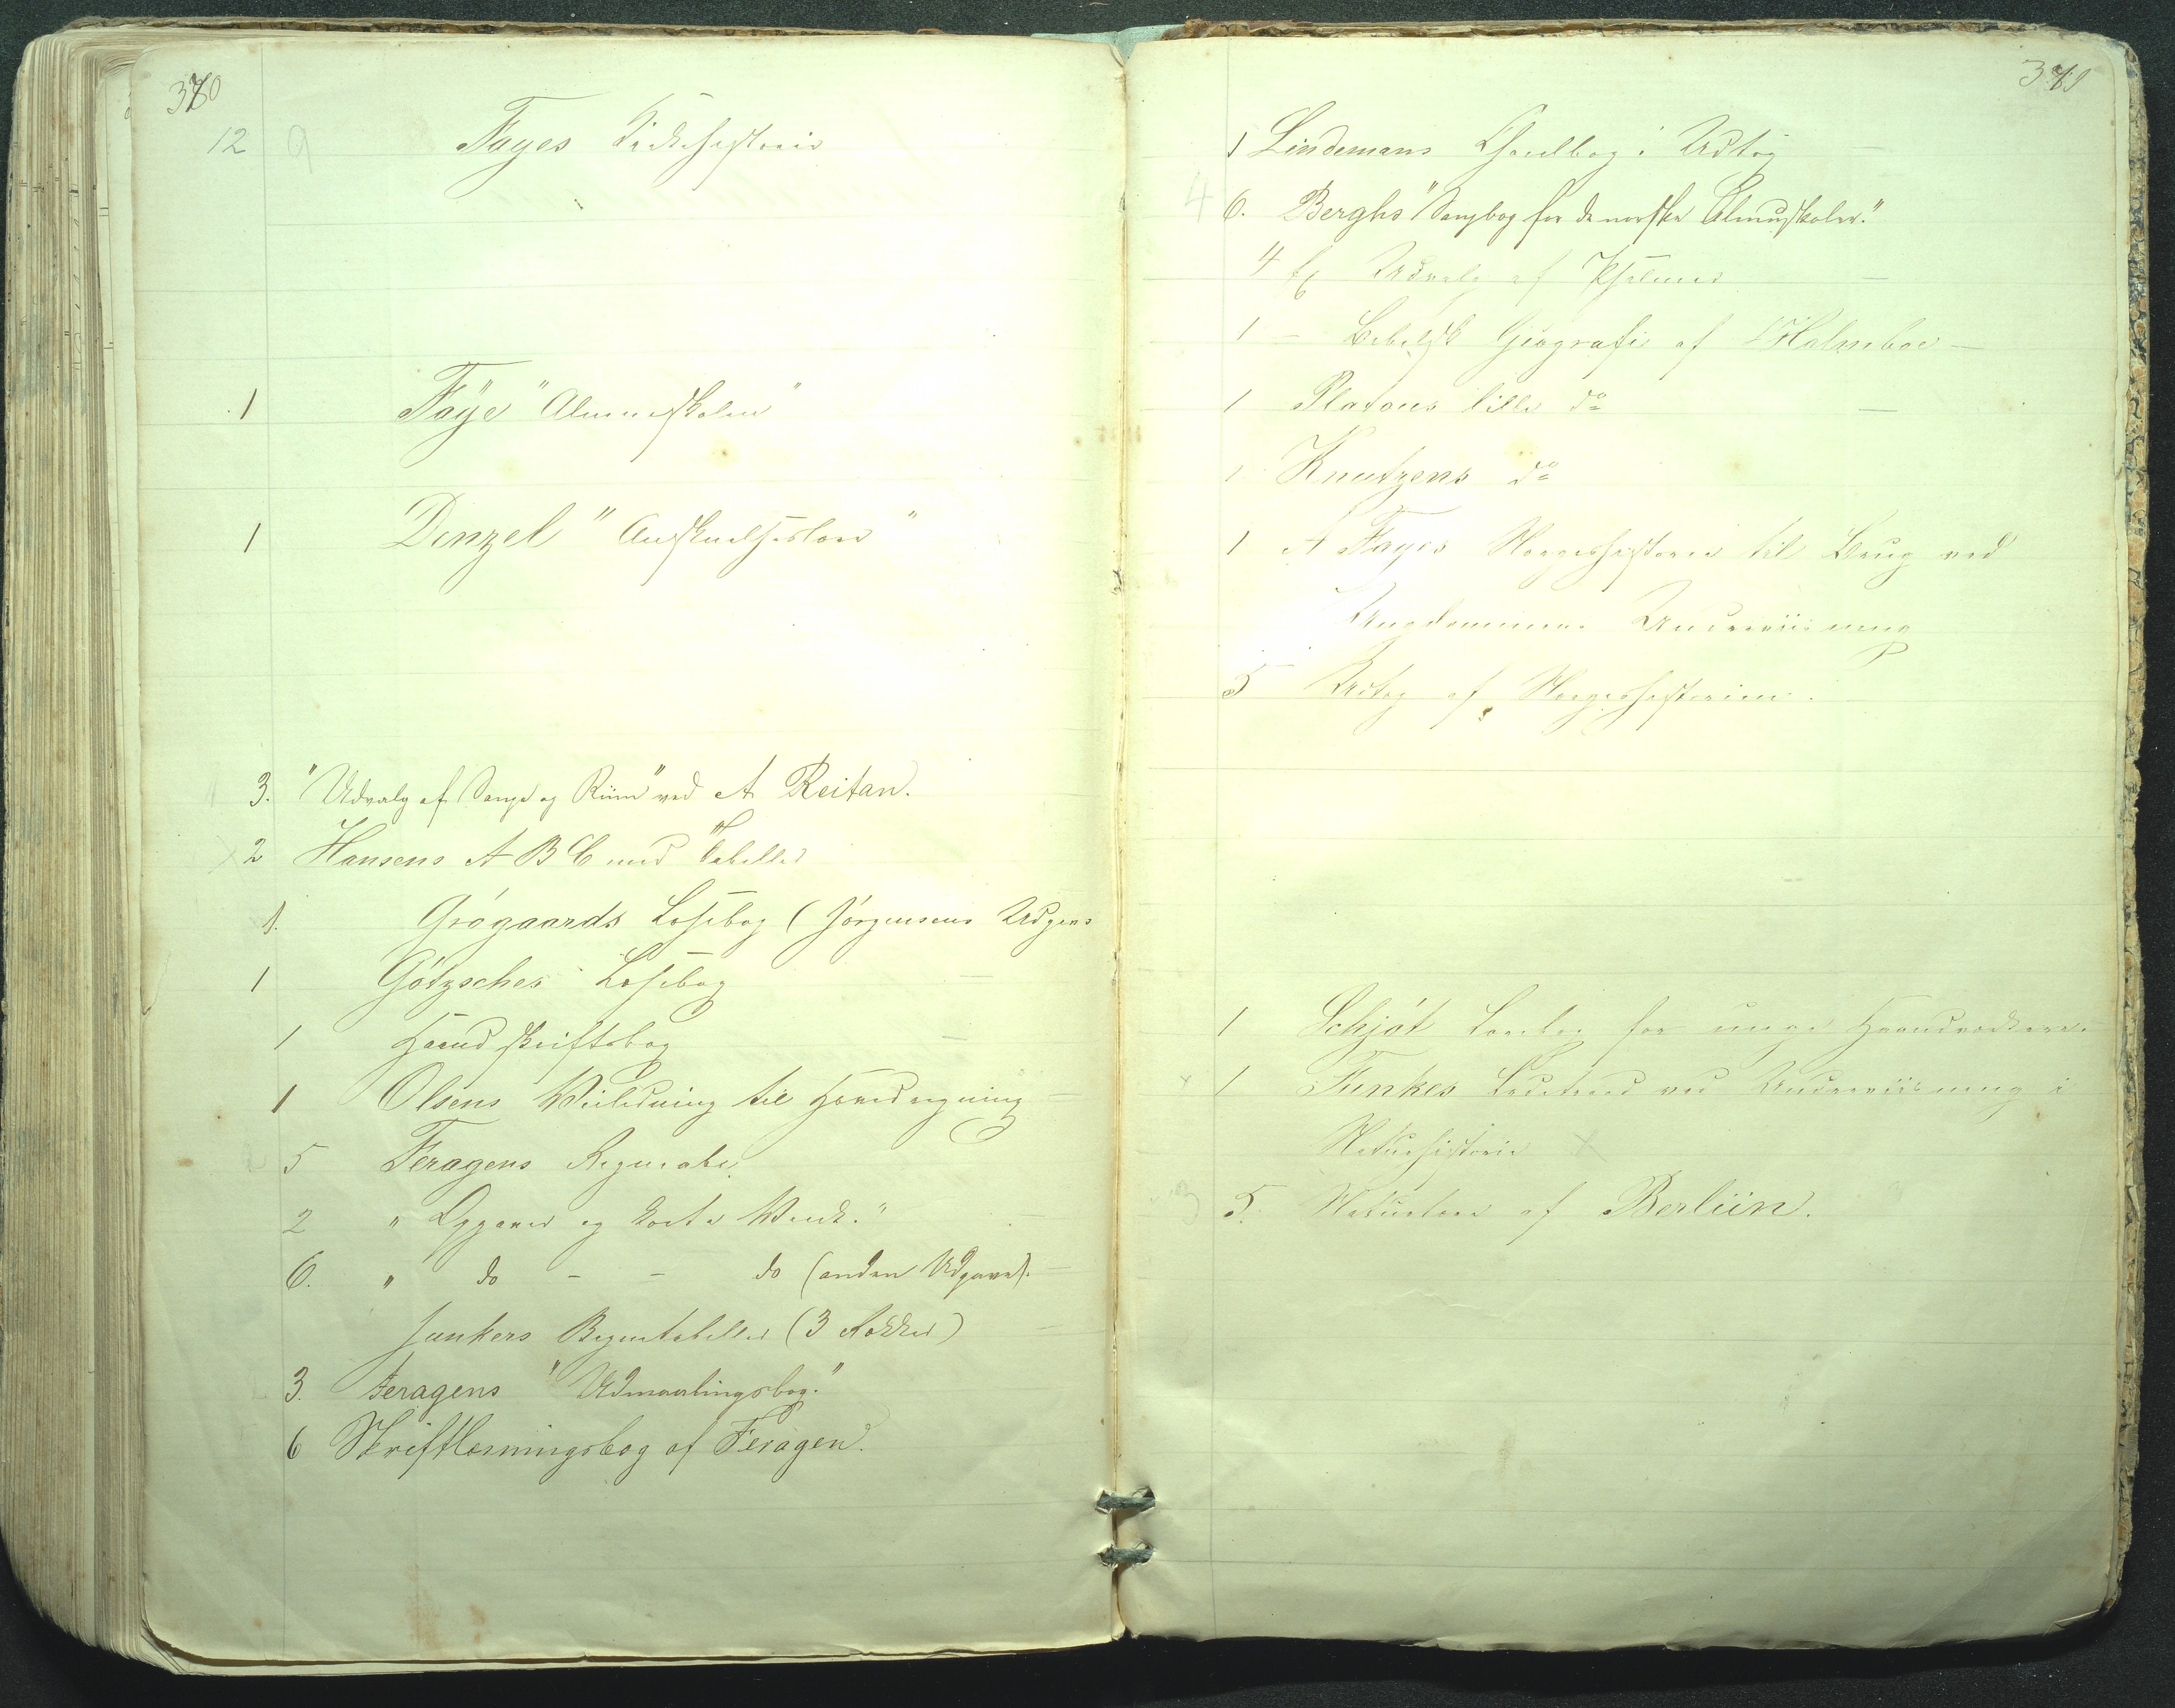 370
12 9 Fayes Kirkehistorie
1 Faye "Almueskolen"
1 Denzel "Anskuelseslære"
3. "Udvalg af Sange og Riim" ved A Reitan.
2 Hansens A B C med Tabeller
1. Grøgaards Læsebog (Jørgensens Udgave
1 Götzsches Læsebog
1 Haandskriftsbog
1 Olsens Veiledning til Hovedregning
5 Feragens Regnebø.
2 " Opgaver og korte Veidl."
6. " do - - do (anden Udgave).
Junkers Regnetabeller (3 Rækker)
3. Feragens "Udmaalingsbog."
6 Skriftlæsningsbog af Feragen.
371
1 Lindemans Choralbog i Udtog
4 6. Berghs "Sangbog for de norske Almuskoler."
4 Ex Udvalg af Psalmer
1 - Bibelsk Geografi af Holmboe -
1 Platous lille do
1 Knutzens do
1 A Fayes Norgeshistorie til Brug ved
Ungdommens Underviisning
5 Udtog af Norgeshistorien.
1 Schjøt Lærebog for unge Haandværkere
x 1 Funkes Ledetraad ved Underviisning i
Naturhistorie x
3 5. Naturlære af Berliin.